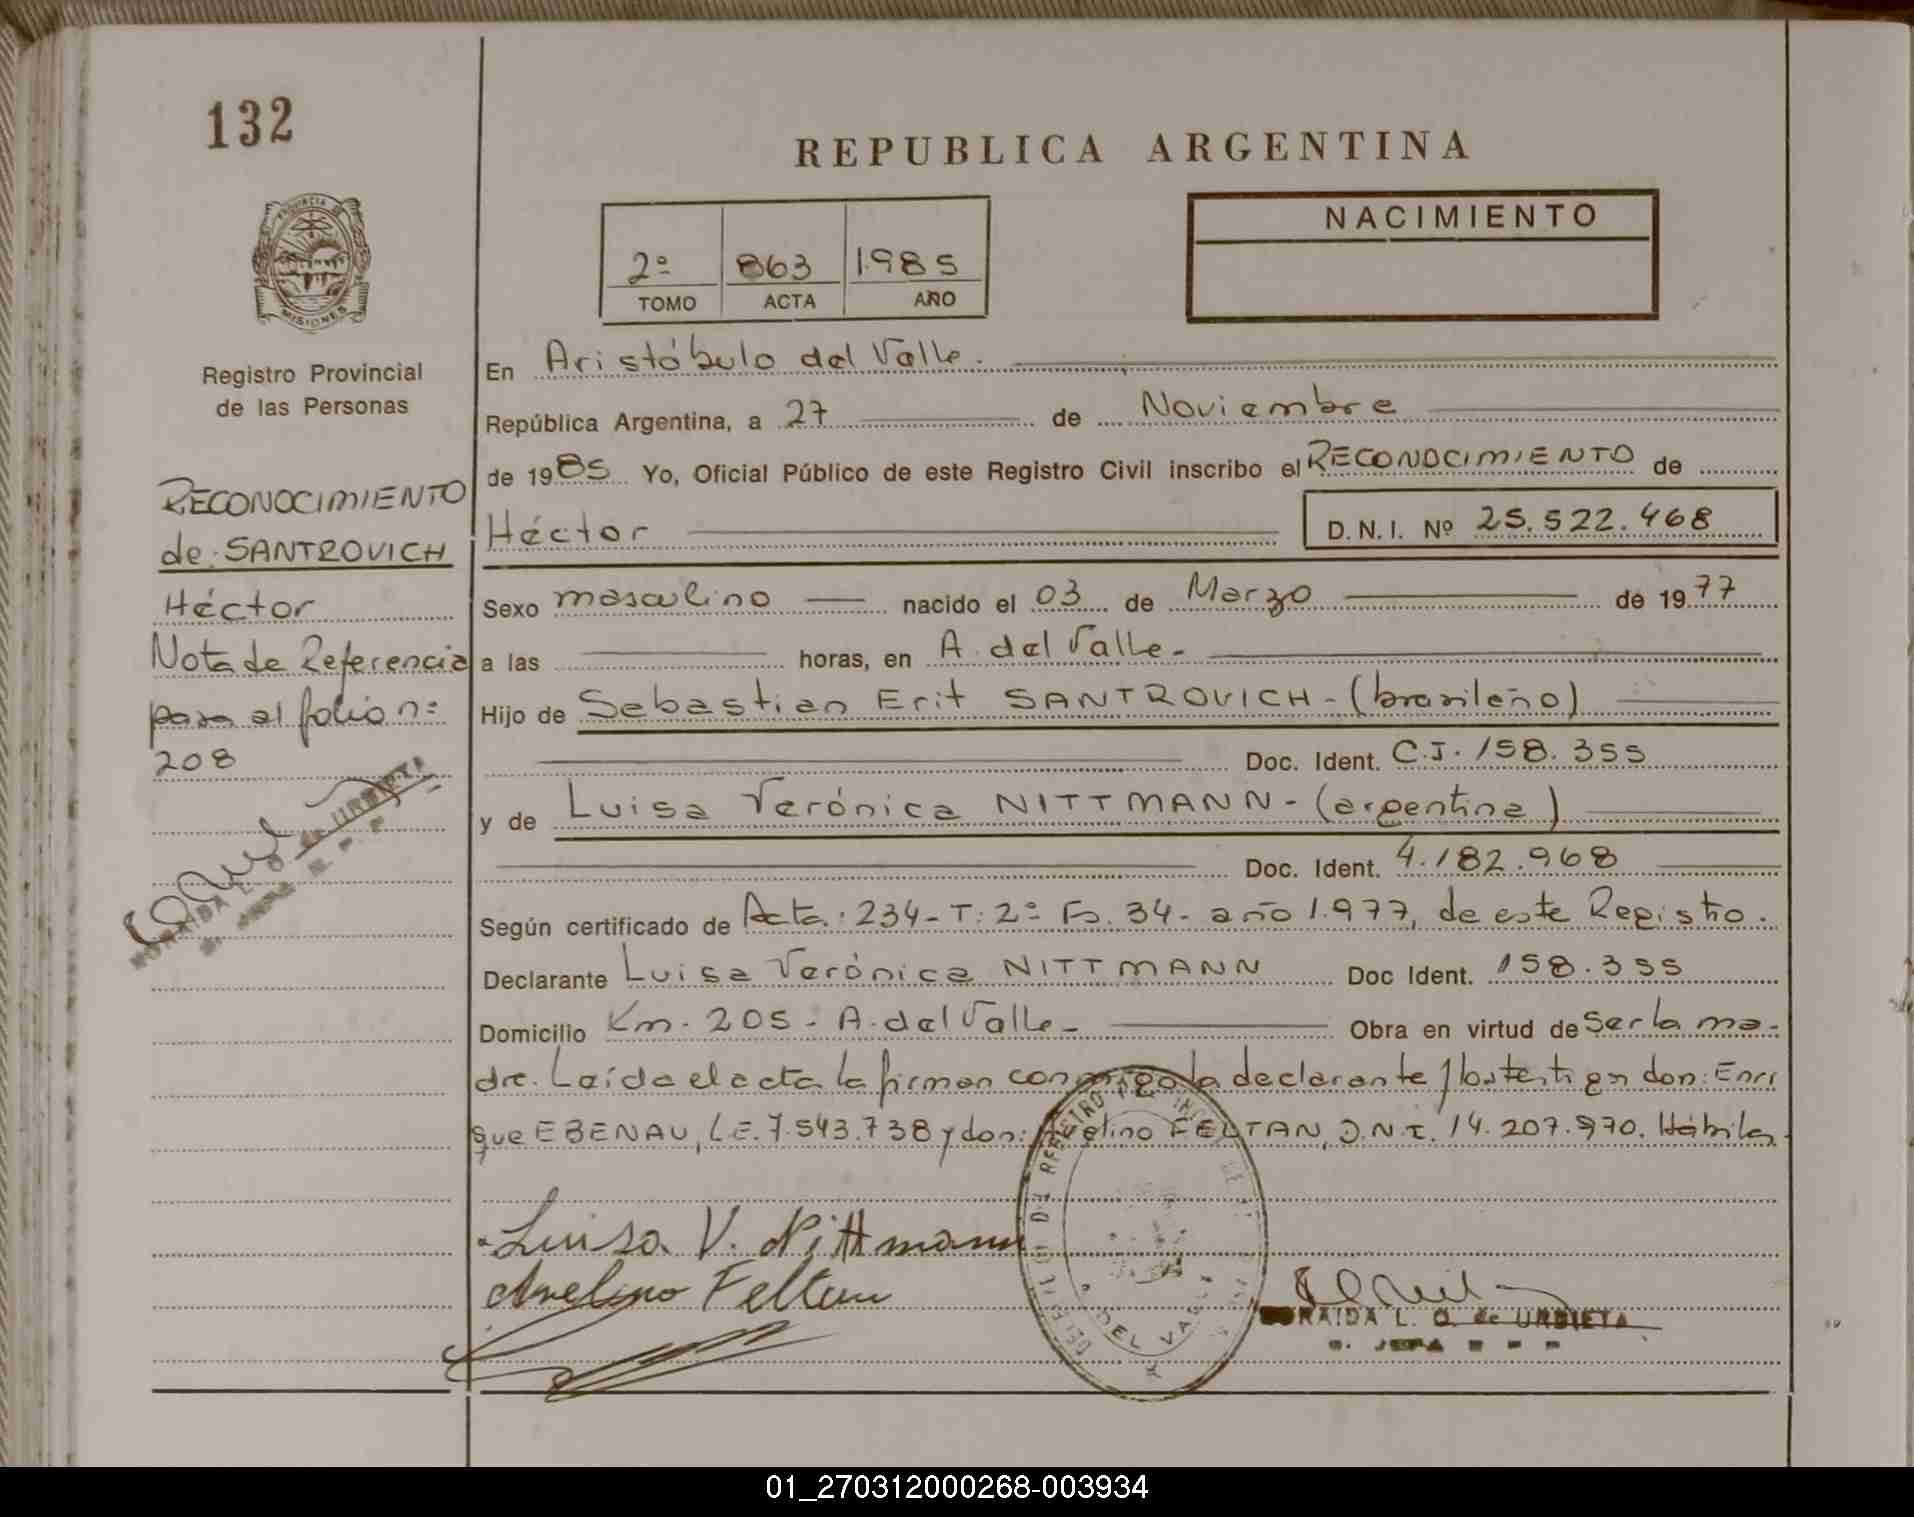 132
REPUBLICA ARGENTINA
PROVINCIA DE
MISIONES
NACIMIENTO
2º 863 1.985
TOMO ACTA AÑO
Registro Provincial
de las Personas
RECONOCIMIENTO
de: SANTROVICH
Héctor
Nota de Referencia
para el folio nº
208
En Aristóbulo del Valle.
República Argentina, a 27 de Noviembre
de 1985 Yo, Oficial Público de este Registro Civil inscribo el RECONOCIMIENTO de
Héctor D.N.I. Nº 25.522.468
Sexo masculino nacido el 03 de Marzo de 1977
a las horas, en A. del Valle-
Hijo de Sebastian Erit SANTROVICH - (brasileño)
Doc. Ident. C.I. 158.355
y de Luisa Verónica NITTMANN - (argentina)
Doc. Ident. 4.182.968
Según certificado de Acta: 234 - T: 2º Fo. 34 - año 1.977, de este Registro.
Declarante Luisa Verónica NITTMANN Doc Ident. 158.355
Domicilio Km. 205 - A. del Valle - Obra en virtud de Ser la ma-
dre. Leída el acta la firman conmigo la declarante y los testigos don: Enri
que EBENAU, L.E. 7.543.738 y don: Avelino FELTAN, D.N.I. 14.207.970. Hábiles
Luisa V. Nittmann
Avelino Feltan
DEL VALLE
RAIDA L. O. de URBIETA
JEFA
01_270312000268-003934